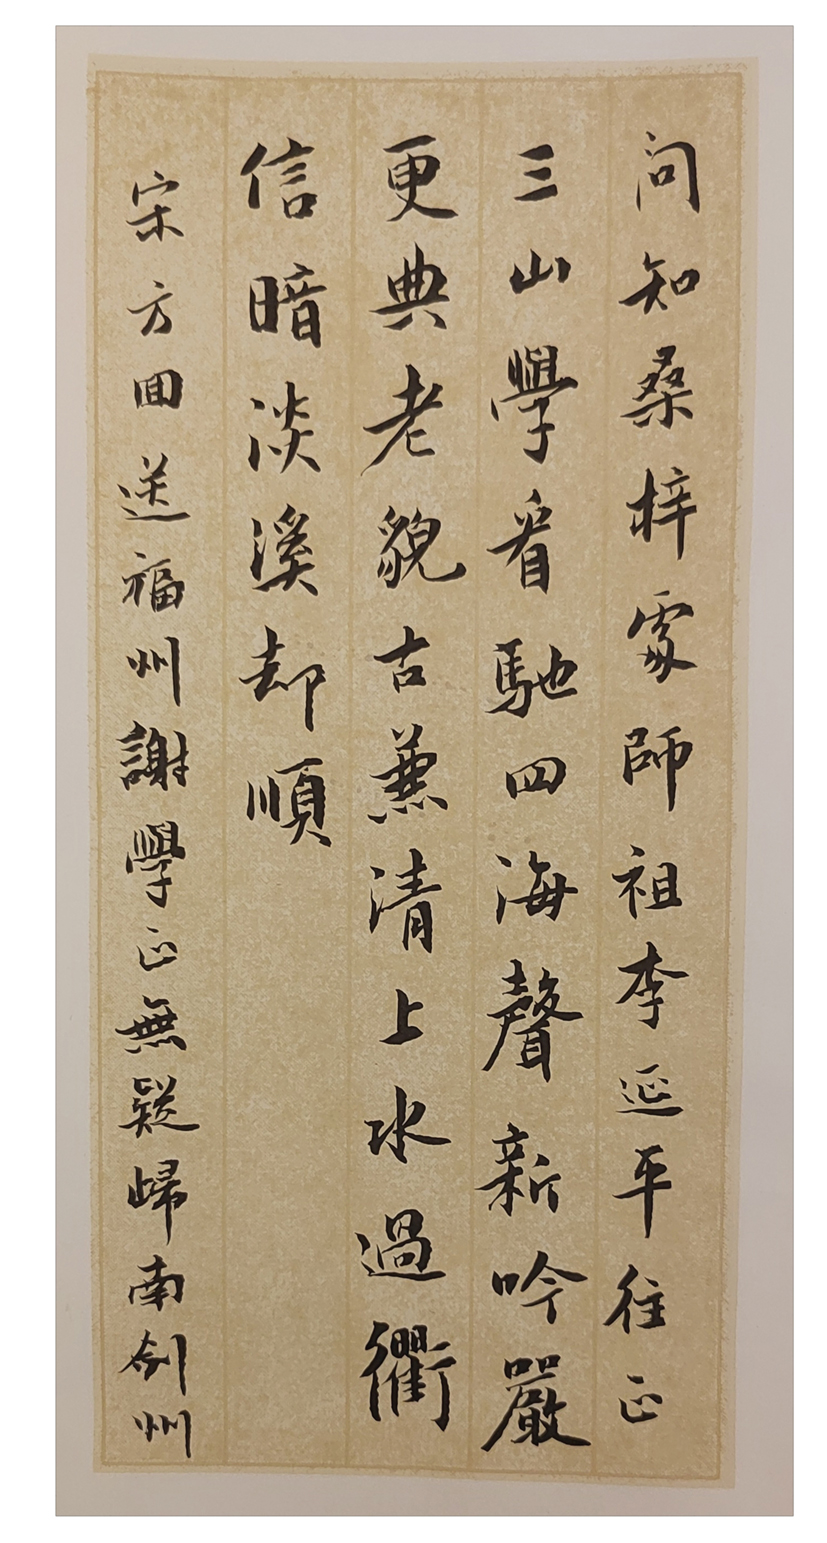 问知桑梓處師祖李延平往正
三山學看馳四海聲新吟嚴
更典老貌古兼清上水過衢
信暗淡溪却順
宋方回送福州謝學正無疑歸南劍州